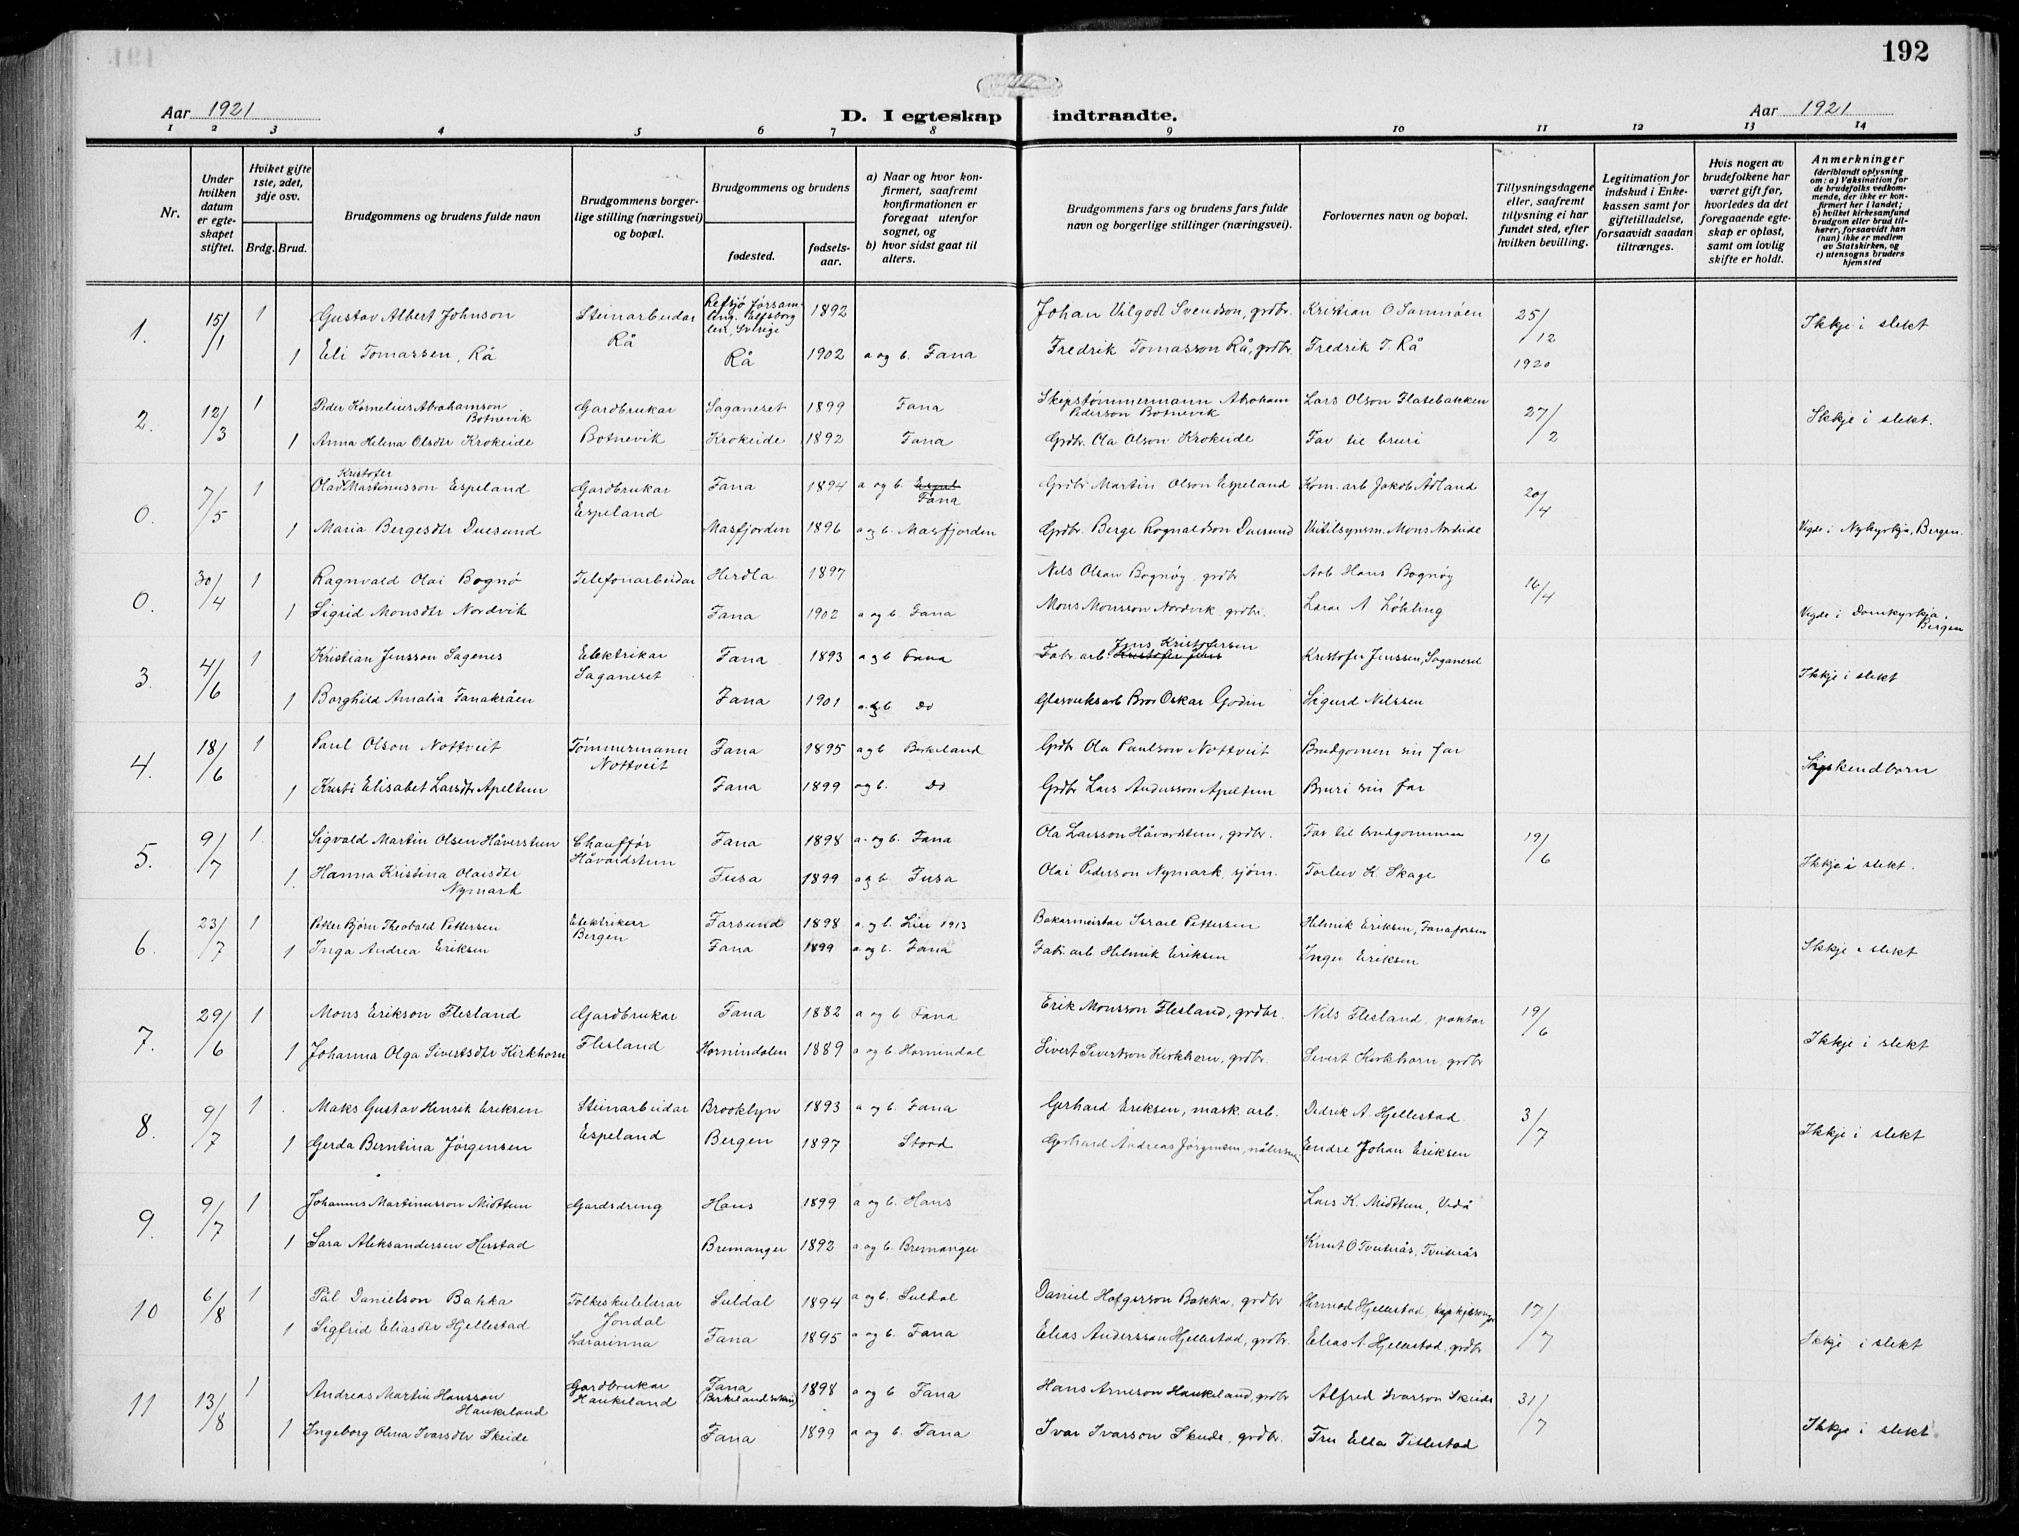 192
Aar 1921
D. I egteskap indtraadte.
Aar 1921
1 2 3 4 5 6 7 8 9 10 11 12 13 14
Nr.
Under hvilken datum er egteskapet stiftet.
Hviket gifte 1ste, 2det, 3dje osv.
Brdg. Brud.
Brudgommens og brudens fulde navn
Brudgommens borgerlige stilling (næringsvei) og bopæl.
Brudgommens og brudens
fødested.
fødselsaar.
a) Naar og hvor konfirmert, saafremt konfirmationen er foregaat utenfor sognet, og
b) hvor sidst gaat til alters.
Brudgommens fars og brudens fars fulde navn og borgerlige stillinger (næringsvei).
Forlovernes navn og bopæl.
Tillysningsdagene eller, saafremt tillysning ei har fundet sted, efter hvilken bevilling.
Legitimation for indskud i Enkekassen samt for giftetilladelse, forsaavidt saadan tiltrænges.
Hvis nogen av brudefolkene har været gift før, hvorledes da det foregaaende egteskap er opløst, samt om lovlig skifte er holdt.
Anmerkninger (deriblandt oplysning om: a) Vaksination for de brudefolks vedkommende, der ikke er konfirmert her i landet; b) hvilket kirkesamfund brudgom eller brud tilhører, forsaavidt han (hun) ikke er medlem av Statskirken, og c) utensogns bruders hjemsted
1. 15/1 1 Gustav Albert Johnson Steinarbeidar Rå Sverige 1892 Johan Vilgodt Svendson, grdbr. Kristian O Samnøen 25/12 1920 Ikkje i slekt
1 Eli Tomassen, Rå Rå 1902 a og b. Fana Fredrik Tomasson Rå, grdbr. Fredrik T. Rå
2. 12/3 1 Peder Kornelius Abrahamson Botnevik Gardbrukar Botnevik Saganeset 1899 Fana Skipstømmermann Abraham Pederson Botnevik Lars Olson Flatebakken 27/2 Ikkje i slekt.
1 Anna Helena Olsdtr Krokeide Krokeide 1892 Fana Grdbr. Ola Olson Krokeide Far til bruri
0. 7/5 1 Olav Kristofer Martinusson Espeland Gardbrukar Espeland Fana 1894 a og b. Fana Grdbr Martin Olson Espeland Kom. arb Jakob Ådland 20/4
1 Maria Bergesdtr Duesund Masfjorden 1896 a og b. Masfjorden Grdbr. Berge Rognaldson Duesund Mons Vigde i Nykyrkja, Bergen.
0. 30/4 1 Ragnvald Olai Bognø Telefonarbeidar Herdla 1897 Nils Olson Bognøy grdbr Arb Hans Bognøy 16/4
1 Sigrid Monsdtr Nordvik Fana 1902 a og b. Fana Mons Monsson Nordvik grdbr. Lars A Løkling Vigde i Domkyrkja, Bergen
3. 4/6 1 Kristian Jensson Sagenes Elektrikar Saganeset Fana 1893 a og b Fana Fabr. arb. Jens Kristofersen Kristofer Jenssen, Saganeset Ikkje i slekt
1 Borghild Amalia Fanakråen Fana 1901 a og b Do Glasverksarb Bror Oskar Godin Sigurd Nilssen
4. 18/6 1 Paul Olson Nottveit Tømmermann Nottveit Fana 1895 a og b Birkeland Grdbr Ola Paulson Nottveit Brudgomen sin far Syskendborn
1 Kristi Elisabet Larsdtr Apeltun Fana 1899 og b. Do Grdbr Lars Andersson Apeltun Bruri sin far
5. 9/7 1 Sigvald Martin Olsen Håverstun Chauffør Håvardstun Fana 1898 a og b. Fana Ola Larsson Håvardstun, grdbr. Far til brudgommen 19/6 Ikkje i slekt.
1 Hanna Kristina Olaisdtr Nymark Fusa 1899 a og b. Fusa Olai Pederson Nymark sjøm. Torleiv K. Skage
6. 23/7 1 Petter Bjørn Theobald Pettersen Elektrikar Bergen Farsund 1898 a og b. Lier 1913 Bakarmeistar Israel Pettersen Helmik Eriksen, Fanafossen Ikkje i slekt
1 Inga Andrea Eriksen Fana 1899 a og b. Fana Fabr. arb. Helmik Eriksen Inger Eriksen
7. 29/6 1 Mons Erikson Flesland Gardbrukar Flesland Fana 1882 a og b Fana Erik Monsson Flesland, grdbr. Nils Flesland, 19/6 Ikkje i slekt
1 Johanna Olga Sivertsdtr Kirkhorn Hornindalen 1889 a og b. Hornindal Sivert Sivertson Kirkhorn, grdbr. Sivert Kirkhorn, grdbr
8. 9/7 1 Maks Gustav Henrik Eriksen Steinarbeidar Espeland Brooklyn 1893 a og b. Fana Gerhard Eriksen, mask. arb. Didrik A. Hjellestad 3/7 Ikkje i slekt
1 Gerda Berntina Jørgensen Bergen 1897 Stord Gerhard Andreas Jørgensen, Endre Johan Eriksen
9. 9/7 1 Johannes Martinusson Midttun Gardsdreng Haus 1899 a og b. Haus Lars K. Midttun,
1 Sara Aleksandersen Herstad Bremanger 1892 a og b. Bremanger Knut O Tveiterås, Tveiterås
10 6/8 1 Pål Danielson Bakka Folkeskulelærar Jondal Suldal 1894 a og b. Suldal Daniel Holgerson Bakka, grdbr Hermod Hjellestad, 17/7
1 Sigfrid Eliasdtr Hjellestad Lærarinna Fana 1895 a og b. Fana Elias Andersson Hjellestad, grdbr. Elias A. Hjellestad, grdbr Ikkje i slekt
11 13/8 1 Andreas Martin Hansson Haukeland Gardbrukar Haukeland Fana (Birkeland sokn) 1898 a og b Fana Hans Arneson Haukeland, grdbr Alfred Ivarson Skeide 31/7
1 Ingeborg Olina Ivarsdtr Skeide Fana 1899 a og b. Fana Ivar Ivarson Skeide, grdbr. Fru Ella Titlestad Ikkje i slekt